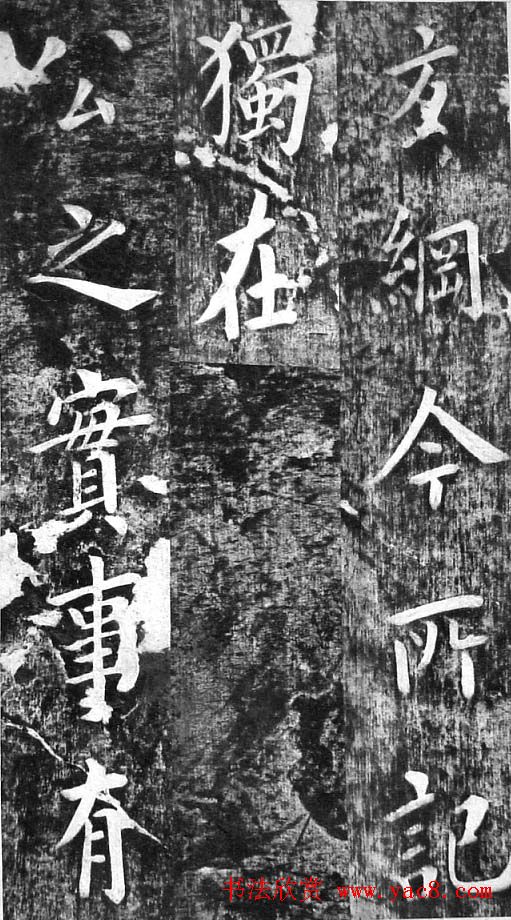 綱今所記
獨在
公之實事有
书法欣赏 www.yac8.com